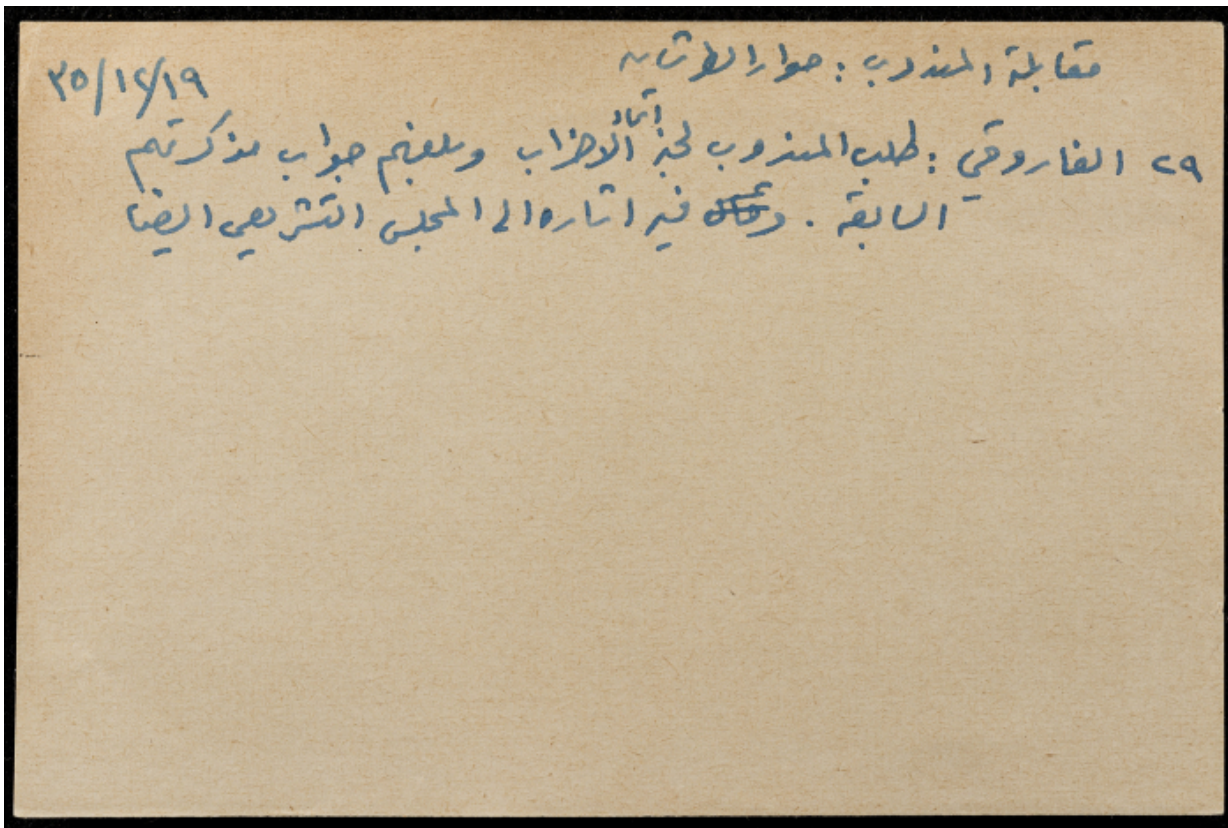 مقابلة المندوب : حوار
٣٥/١٢/١٩
٢٩ الفاروقي : طلب المندوب لجنة الأحزاب وبلغهم جواب مذكرتهم
السابقة . فيه اشارة الى المجلس التشريعي ايضا